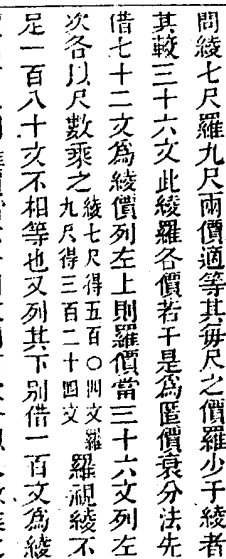 問綾七尺羅九尺兩價適等其每尺之價羅少于綾者
其較三十六文此綾羅各價若干是爲匿價衰分法先
借七十二文爲綾價列左上則羅價當三十六文列左
次各以尺數乘之綾七尺得五百〇四文羅九尺得三百二十四文羅視綾不
足一百八十文不相等也又列其下别借一百文爲綾